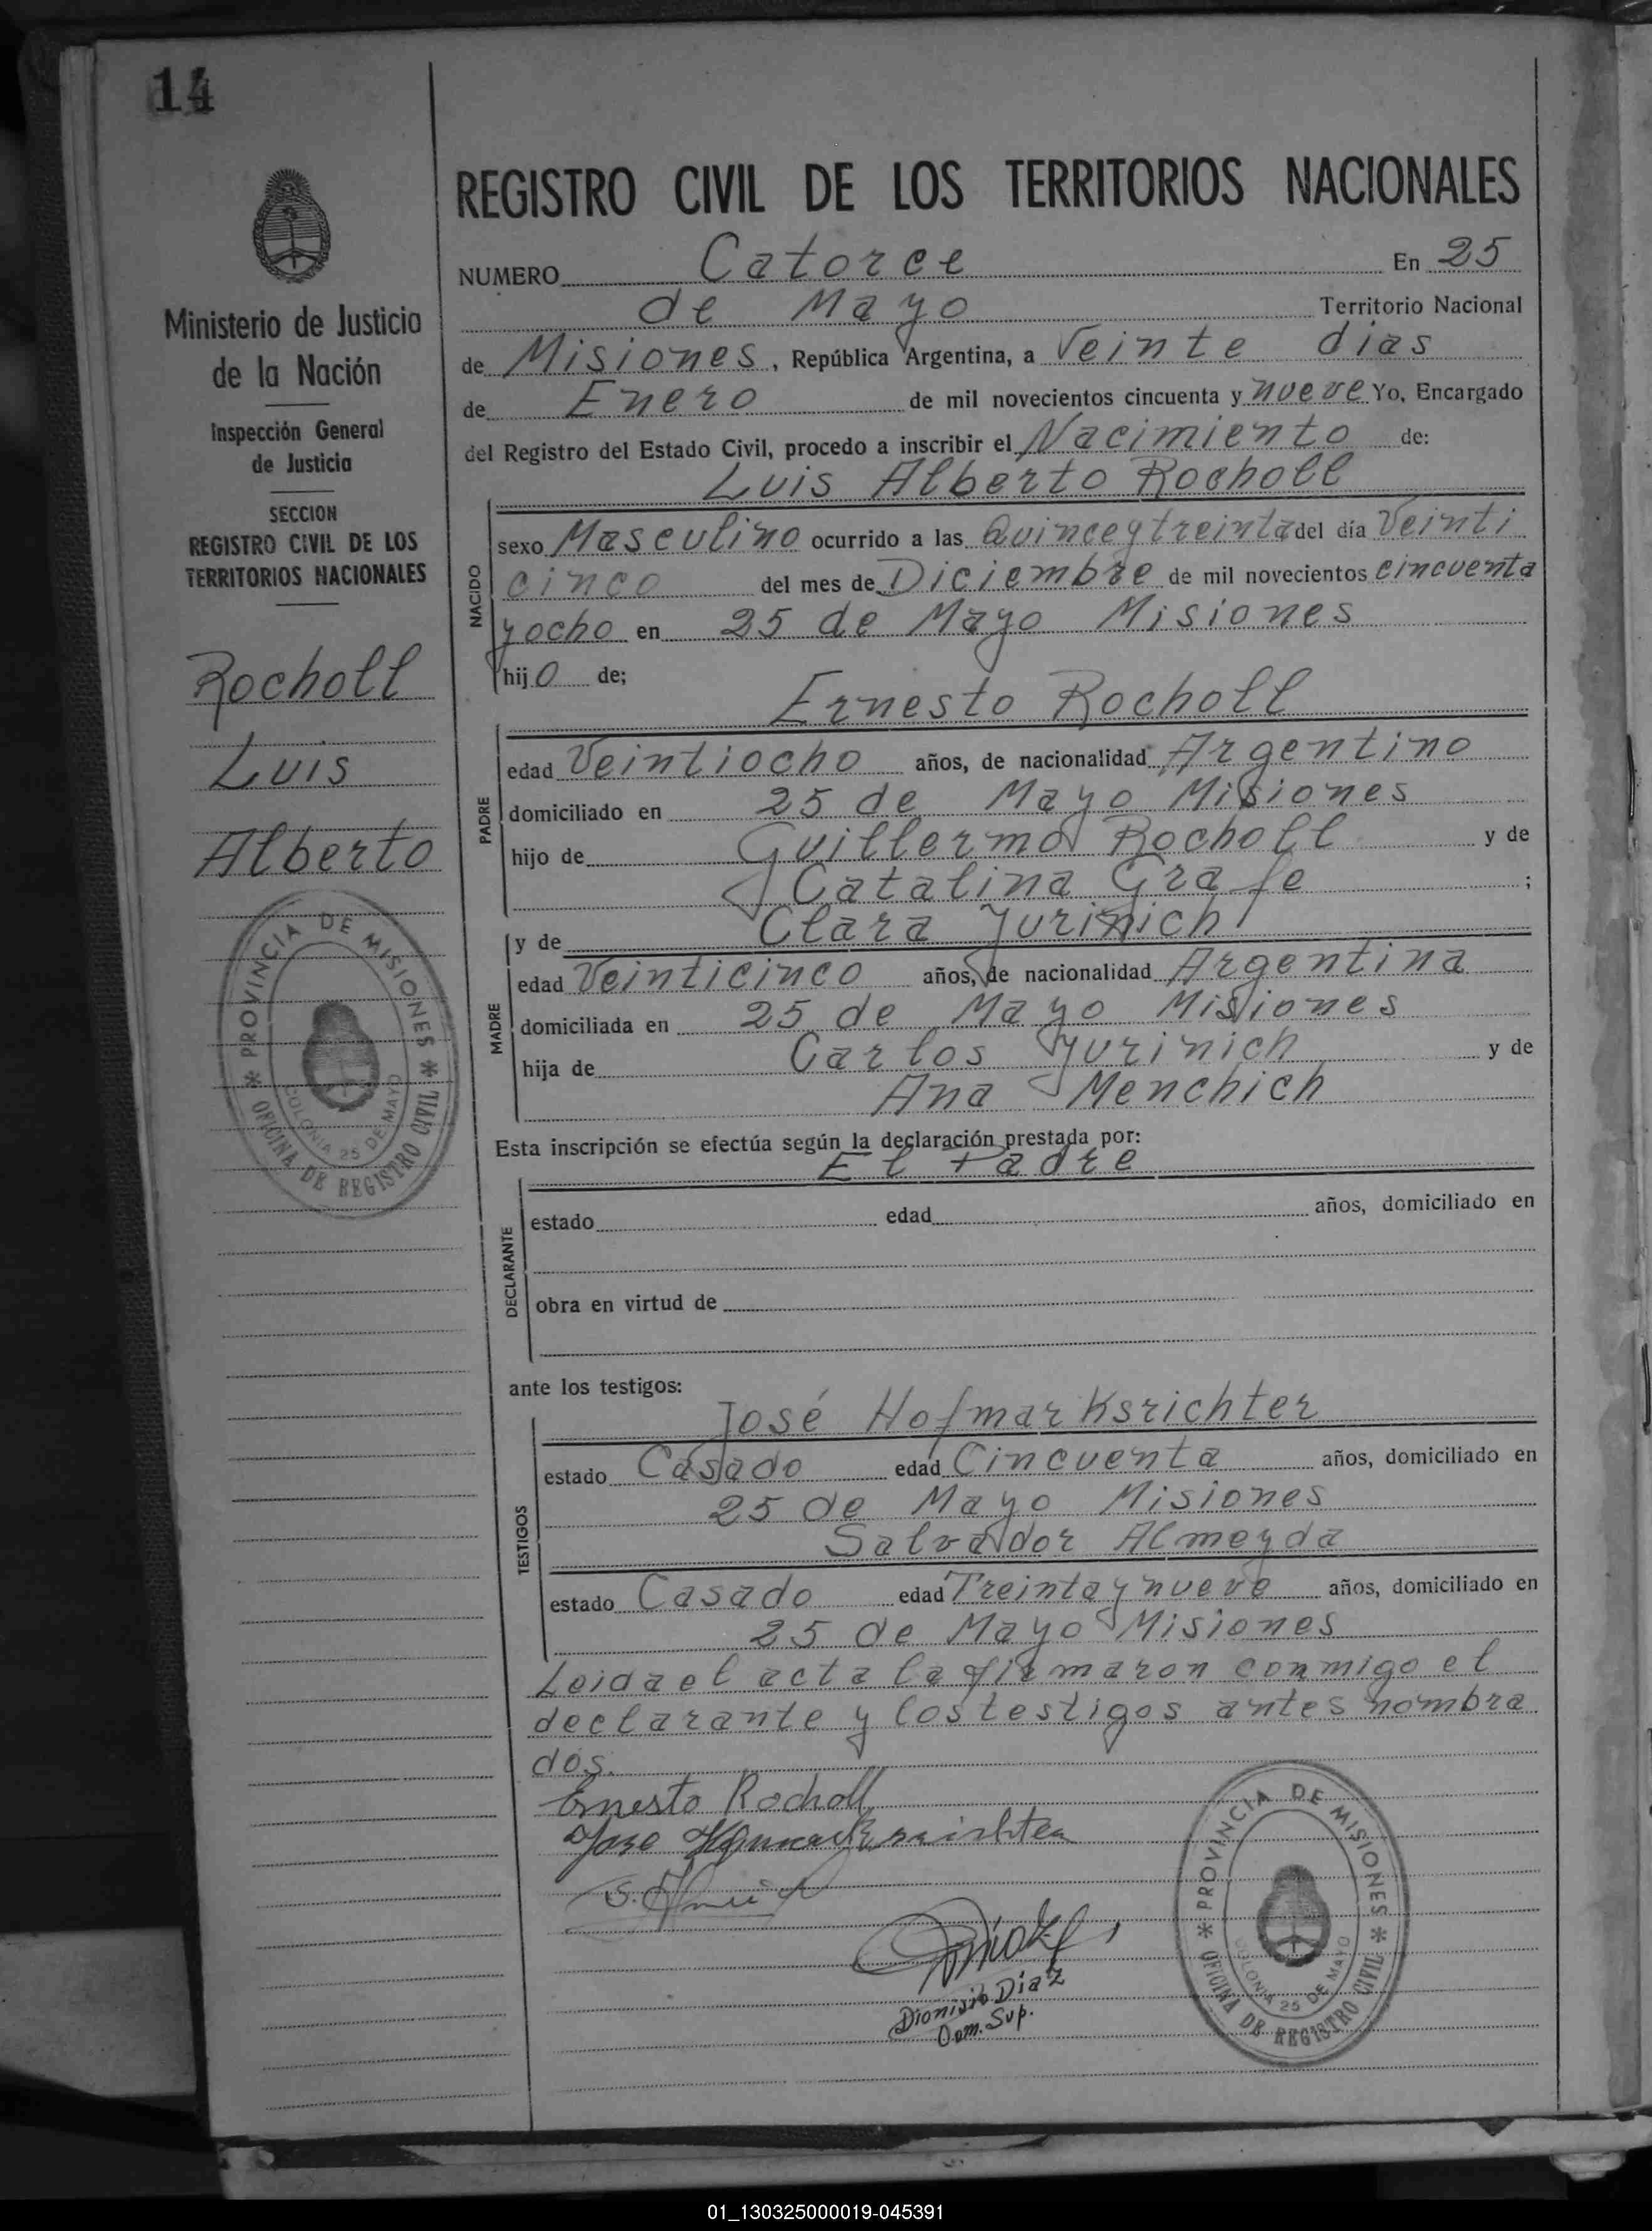 14
REGISTRO CIVIL DE LOS TERRITORIOS NACIONALES
NUMERO Catorce En 25
de Mayo Territorio Nacional
de Misiones, República Argentina, a Veinte dias
de Enero de mil novecientos cincuenta y nueve Yo, Encargado
del Registro del Estado Civil, procedo a inscribir el Nacimiento de:
Luis Alberto Rocholl
sexo Masculino ocurrido a las Quince y treinta del día Veinti
cinco del mes de Diciembre de mil novecientos cincuenta
y ocho en 25 de Mayo Misiones
hijo de;
NACIDO
Ernesto Rocholl
edad Veintiocho años, de nacionalidad Argentino
domiciliado en 25 de Mayo Misiones
hijo de Guillermo Rocholl y de
Catalina Grafe ;
PADRE
y de Clara Yurinich
edad Veinticinco años, de nacionalidad Argentina
domiciliada en 25 de Mayo Misiones
hija de Carlos Yurinich y de
Ana Menchich
MADRE
Esta inscripción se efectúa según la declaración prestada por:
El Padre
estado edad años, domiciliado en
obra en virtud de
DECLARANTE
ante los testigos:
José Hofmarksrichter
estado Casado edad Cincuenta años, domiciliado en
25 de Mayo Misiones
Salvador Almeyda
estado Casado edad Treinta y nueve años, domiciliado en
25 de Mayo Misiones
TESTIGOS
Leida el acta la firmaron conmigo el
declarante y los testigos antes nombra
dos.
Ernesto Rocholl
Dionisio Diaz
Sup.
PROVINCIA DE MISIONES
OFICINA DE REGISTRO CIVIL
COLONIA 25 DE MAYO
Ministerio de Justicia
de la Nación
Inspección General
de Justicia
SECCION
REGISTRO CIVIL DE LOS
TERRITORIOS NACIONALES
Rocholl
Luis
Alberto
PROVINCIA DE MISIONES
OFICINA DE REGISTRO CIVIL
COLONIA 25 DE MAYO
01_130325000019-045391